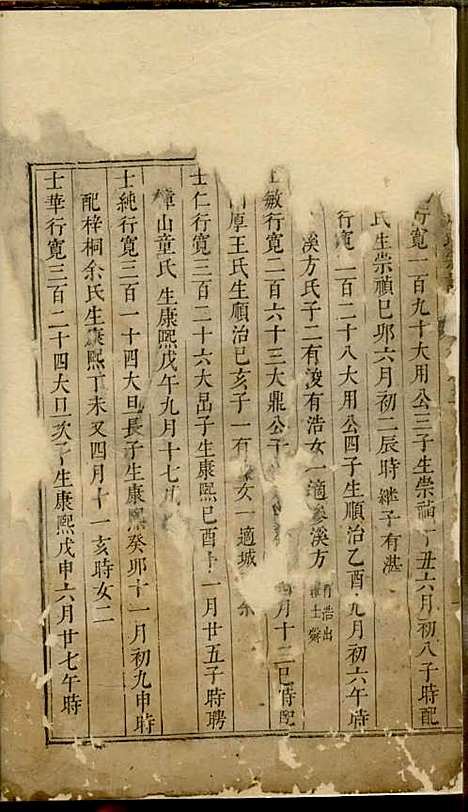 行寬一百九十大用公三子生崇禎丁丑六月初八子時配
民生崇禎己卯六月初二辰時繼子有湛
行寬一百二十八大用公四子生順治乙酉九月初六午時
溪方氏子二有浚有浩女一適參溪方有浩出
敏行寬二百六十三大鼎公子月十二巳時配
厚王氏生順治己亥子一有女一適城余
士仁行寬三百二十六大昂子生康熙己酉十一月廿五子時聘
章山童氏生康熙戊午九月十七
士純行寬三百一十四大旦長子生康熙癸卯十一月初九申時
配梓桐余氏生康熙丁未又四月十一亥時女二
士華行寬三百二十四大旦次子生康熙戊申六月廿七午時